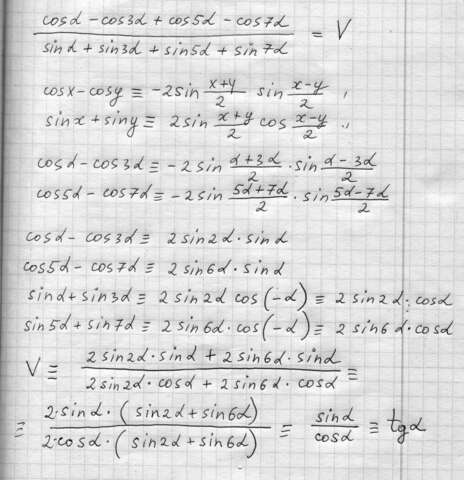 (cosα - cos3α + cos5α - cos7α)/(sinα + sin3α + sin5α + sin7α) = V
cosx - cosy ≡ -2sin (x+y)/2 sin (x-y)/2 ,
sinx + siny ≡ 2sin (x+y)/2 cos (x-y)/2 ..
cosα - cos3α ≡ -2sin (α+3α)/2 · sin (α-3α)/2
cos5α - cos7α ≡ -2sin (5α+7α)/2 · sin (5α-7α)/2
cosα - cos3α ≡ 2sin2α · sinα
cos5α - cos7α ≡ 2sin6α · sinα
sinα + sin3α ≡ 2sin2α cos(-α) ≡ 2sin2α · cosα
sin5α + sin7α ≡ 2sin6α · cos(-α) ≡ 2sin6α · cosα
V ≡ (2sin2α · sinα + 2sin6α · sinα)/(2sin2α · cosα + 2sin6α · cosα) ≡
≡ (2·sinα · (sin2α + sin6α))/(2·cosα · (sin2α + sin6α)) ≡ sinα/cosα ≡ tgα